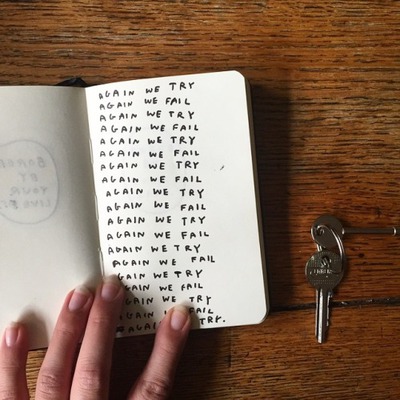 BY
YOUR
AGAIN WE TRY
AGAIN WE FAIL
AGAIN WE TRY
AGAIN WE FAIL
AGAIN WE TRY
AGAIN WE FAIL
AGAIN WE TRY
AGAIN WE FAIL
AGAIN WE TRY
AGAIN WE FAIL
AGAIN WE TRY
AGAIN WE FAIL
AGAIN WE TRY
AGAIN WE FAIL
AGAIN WE TRY
AGAIN WE FAIL
AGAIN WE TRY
AGAIN WE FAIL
AGAIN TRY.